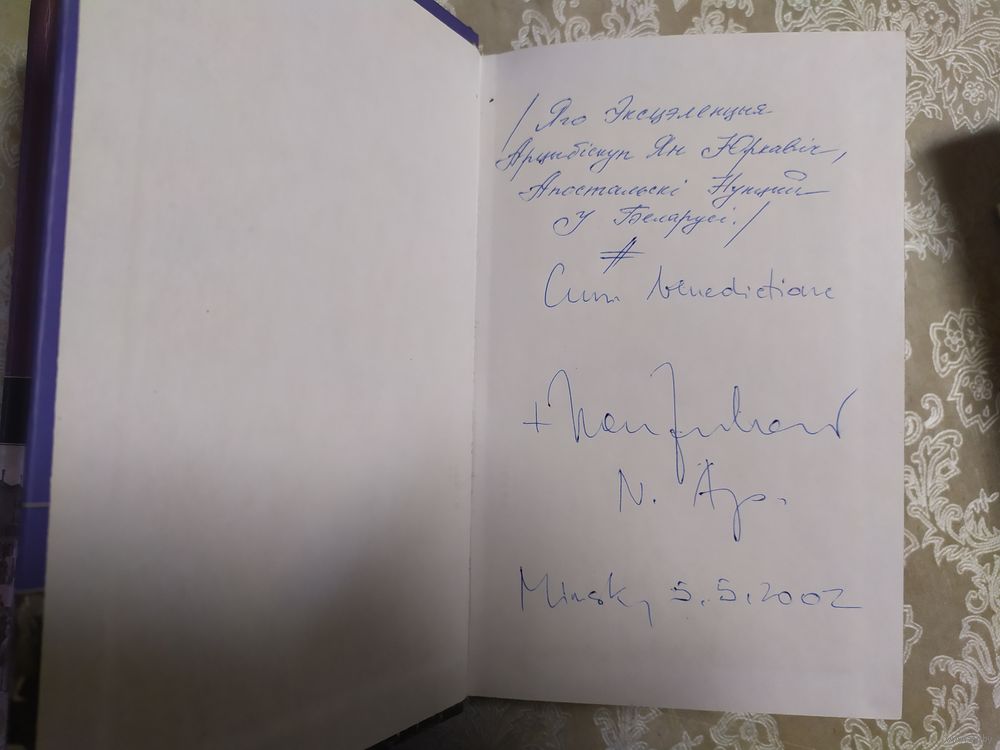 /Яго Эксцэленцыя
Арцыбіскуп Ян Юрковіч,
Апостальскі Нунцый
У Беларусі./
#
Cum benedictione
+
N. Ap.
Minsk, 5.5.2002